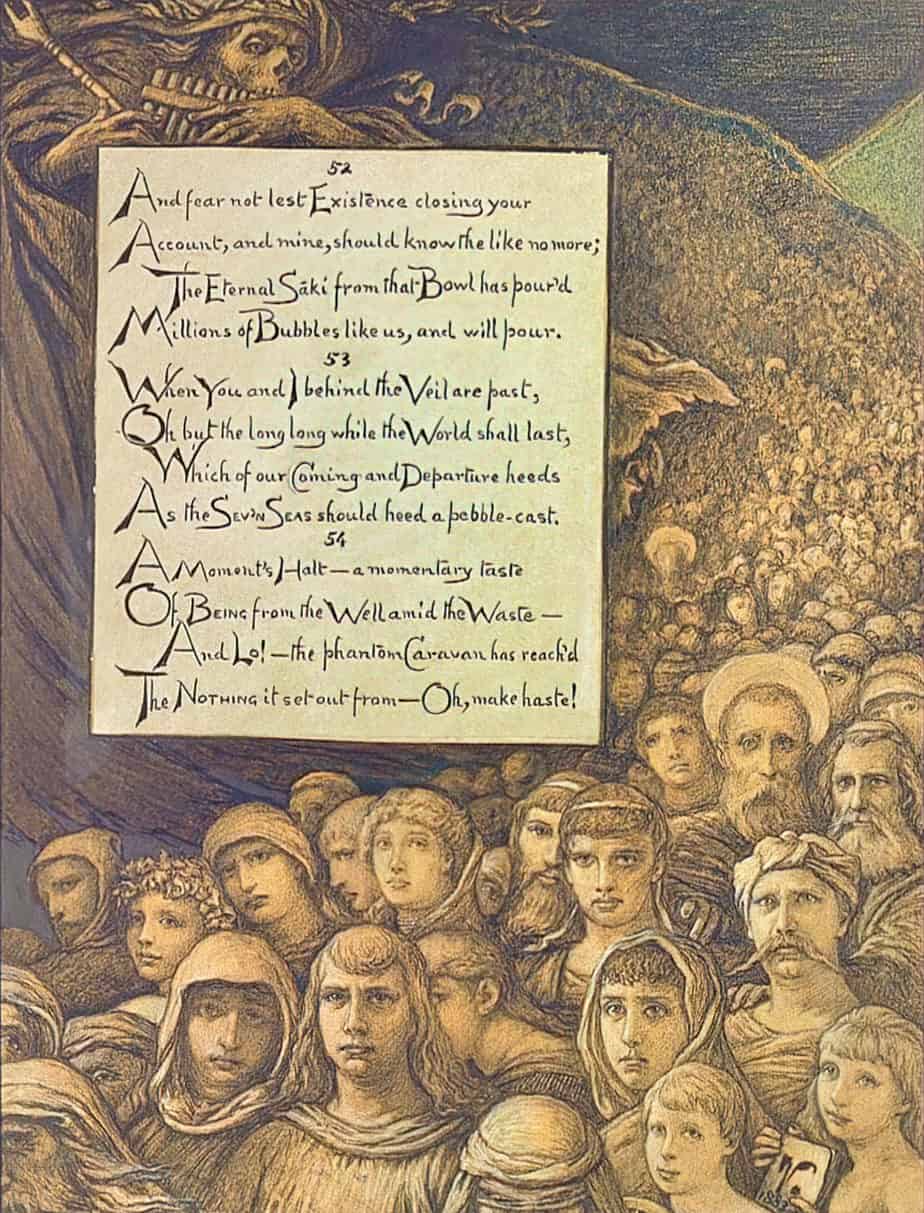 52
And fear not lest Existence closing your
Account, and mine, should know the like no more;
The Eternal Sākí from that Bowl has pour'd
Millions of Bubbles like us, and will pour.
53
When You and I behind the Veil are past,
Oh but the long long while the World shall last,
Which of our Coming and Departure heeds
As the SEV'N SEAS should heed a pebble-cast.
54
A Moment's Halt—a momentary taste
Of BEING from the Well amid the Waste—
And Lo!—the phantom Caravan has reach'd
The NOTHING it set out from—Oh, make haste!